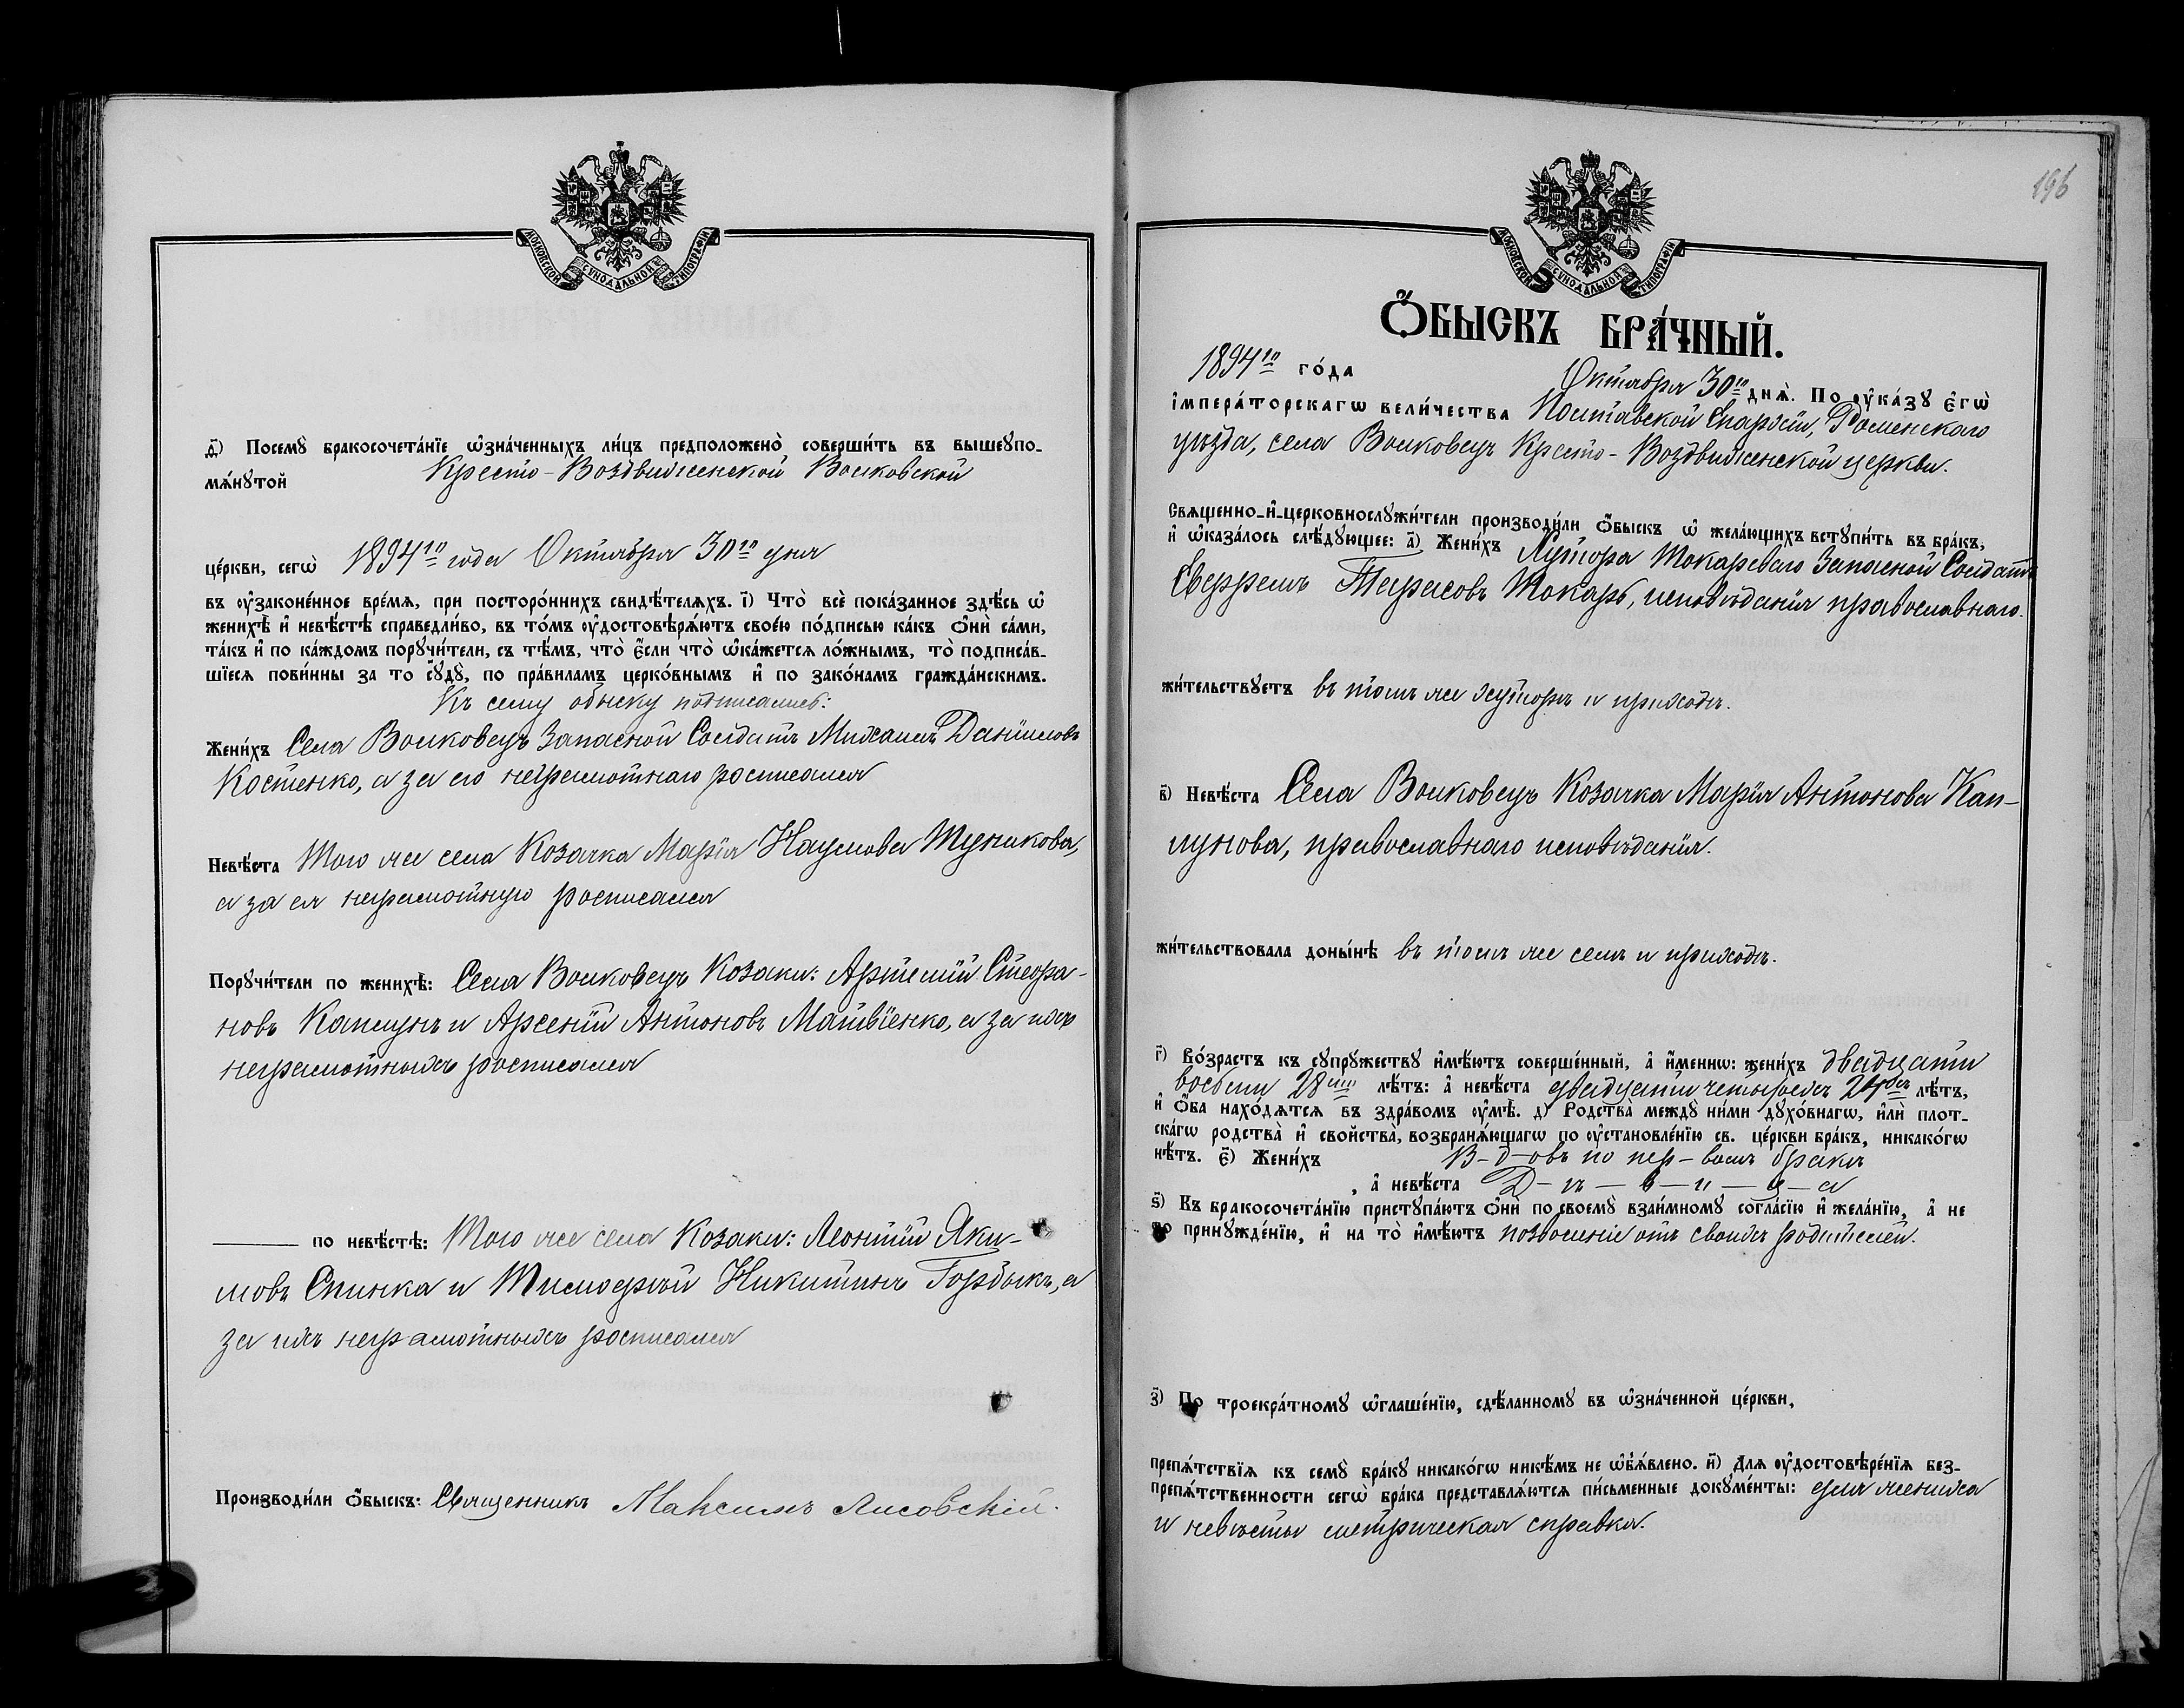 МОСКОВСКОЙ СѴНОДАЛЬНОЙ ТИПОГРАФІИ
д҃) Посемꙋ бракосочета́нїе ѡ҆зна́ченныхъ ли́цъ предположено̀ соверши́ть въ вышеꙋпо-
мѧ́нꙋтой Кресто-Воздвиженской Волковской
це́ркви, сегѡ̀ 1894го года Октября 30го дня
въ ᲂу҆законе́нное вре́мѧ, при посторо́ннихъ свидѣ́телѧхъ. і҃) Что̀ всѐ пока́занное здѣ́сь ѡ҆
женихѣ̀ и҆ невѣ́стѣ справедли́во, въ то́мъ ᲂу҆достовѣрѧ́ютъ свое́ю по́дписью ка́къ ѻ҆нѝ са́ми,
та́къ и҆ по ка́ждомъ порꙋчи́тели, съ тѣ́мъ, что̀ є҆́сли что̀ ѡ҆ка́жетсѧ ло́жнымъ, то̀ подписа́в-
шїесѧ пови́нны за то сꙋдꙋ̀, по пра́виламъ церко́внымъ и҆ по зако́намъ гражда́нскимъ.
Къ сему обыску подписались:
Жени́хъ Села Волковецъ Запасной Солдатъ Михаилъ Даніиловъ
Костенко, а за его неграмотнаго росписался
Невѣ́ста Того же села Козачка Марія Наумова Шунькова,
а за ея неграмотную росписался
Порꙋчи́тели по женихѣ̀: Села Волковецъ Козаки: Артемій Стефа-
новъ Каплунъ и Арсеній Антоновъ Матвіенко, а за ихъ
неграмотныхъ росписался
по невѣ́стѣ: Того же села Козаки: Леонтій Яки-
мовъ Спинка и Тимофей Никитинъ Горбыкъ, а
за ихъ неграмотныхъ росписался
Производи́ли ѻ҆́быскъ: Священникъ Максимъ Лисовскій.
196
МОСКОВСКОЙ СѴНОДАЛЬНОЙ ТИПОГРАФІИ
Ѻ҆́БЫСКЪ БРА́ЧНЫЙ.
1894го го́да Октября 30го днѧ̀. По ᲂу҆ка́зꙋ є҆гѡ̀
і҆мпера́торскагѡ вели́чества Полтавской Епархіи, Роменскаго
уѣзда, села Волковецъ Кресто-Воздвиженской церкви.
Свѧщенно-и҆-церковнослꙋжи́тели производи́ли ѻ҆́быскъ ѡ҆ жела́ющихъ встꙋпи́ть въ бра́къ,
и҆ ѡ҆каза́лось слѣ́дꙋющее: а҃) Жени́хъ Хутора Токарева Запасной Солдатъ
Ефремъ Тарасовъ Токарь, исповѣданія православнаго.
жи́тельствꙋетъ въ томъ же хуторѣ и приходѣ.
в҃) Невѣ́ста Села Волковецъ Козачка Марія Антонова Кап-
лунова, православнаго исповѣданія.
жи́тельствовала доны́нѣ въ томъ же селѣ и приходѣ.
г҃) Во́зрастъ къ сꙋпрꙋ́жествꙋ и҆мѣ́ютъ соверше́нный, а҆ и҆́меннѡ: жени́хъ двадцати
восьми 28ми лѣ́тъ: а҆ невѣ́ста двадцати четырехъ 24хъ лѣ́тъ,
и҆ ѻ҆́ба нахо́дѧтсѧ въ здра́вомъ ᲂу҆мѣ̀. д҃) Родства̀ междꙋ ни́ми дꙋхо́внагѡ, и҆лѝ плот-
ска́гѡ родства̀ и҆ свойства̀, возбранѧ́ющагѡ по ᲂу҆становле́нїю св. це́ркви бра́къ, никако́гѡ
нѣ́тъ. є҃) Жени́хъ В-д-овъ по пер-вомъ бракѣ
, а҆ невѣ́ста Д-ѣ-в-и-ц-а
ѕ҃) Къ бракосочета́нїю пристꙋпа́ютъ ѻ҆нѝ по своемꙋ̀ взаи́мномꙋ согла́сїю и҆ жела́нїю, а҆ не
по принꙋжде́нїю, и҆ на то̀ и҆мѣ́ютъ позволеніе отъ своихъ родителей.
з҃) По троекра́тномꙋ ѡ҆глаше́нїю, сдѣ́ланномꙋ въ ѡ҆зна́ченной це́ркви,
препѧ́тствїѧ къ семꙋ̀ бра́кꙋ никако́гѡ никѣ́мъ не ѡ҆б̾ѧ́влено. и҃) Длѧ ᲂу҆достовѣре́нїѧ без-
препѧ́тственности сегѡ̀ бра́ка представлѧ́ютсѧ пи́сьменные докꙋме́нты: для жениха
и невѣсты метрическая справка.